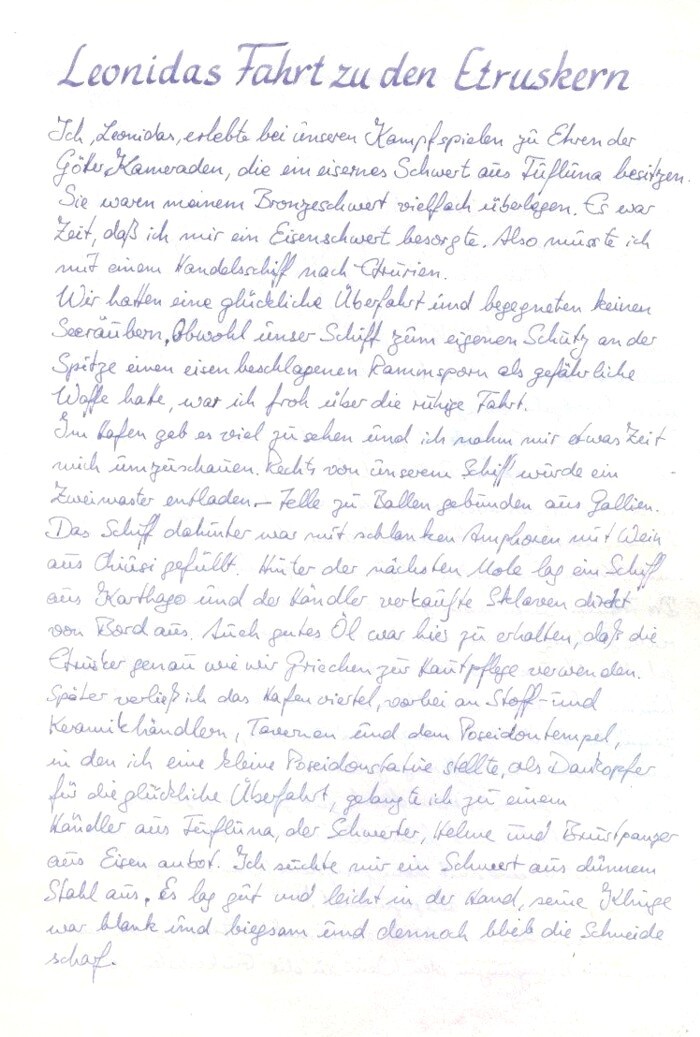 Leonidas Fahrt zu den Etruskern
Ich, Leonidas, erlebte bei unseren Kampfspielen zu Ehren der
Götter Kameraden, die ein eisernes Schwert aus Fufluna besitzen.
Sie waren meinem Bronzeschwert vielfach überlegen. Es war
Zeit, daß ich mir ein Eisenschwert besorgte. Also musste ich
mit einem Handelsschiff nach Etrurien.
Wir hatten eine glückliche Überfahrt und begegneten keinen
Seeräubern, Obwohl unser Schiff zum eigenen Schutz an der
Spitze einen eisenbeschlagenen Rammsporn als gefährliche
Waffe hatte, war ich froh über die ruhige Fahrt.
Im Hafen gab es viel zu sehen und ich nahm mir etwas Zeit
mich umzuschauen. Rechts von unserem Schiff wurde ein
Zweimaster entladen – Felle zu Ballen gebunden aus Gallien.
Das Schiff dahinter war mit schlanken Amphoren mit Wein
aus Chiusi gefüllt. Hinter der nächsten Mole lag ein Schiff
aus Karthago und der Händler verkaufte Sklaven direkt
von Bord aus. Auch gutes Öl war hier zu erhalten, daß die
Etrusker genau wie wir Griechen zur Hautpflege verwenden.
Später verließ ich das Hafenviertel, vorbei an Stoff- und
Keramikhändlern, Tavernen und dem Poseidontempel,
in den ich eine kleine Poseidonstatue stellte, als Dankopfer
für die glückliche Überfahrt, gelangte ich zu einem
Händler aus Fufluna, der Schwerter, Helme und Brustpanzer
aus Eisen anbot. Ich suchte mir ein Schwert aus dünnem
Stahl aus. Es lag gut und leicht in der Hand, seine Klinge
war blank und biegsam und dennoch blieb die Schneide
scharf.